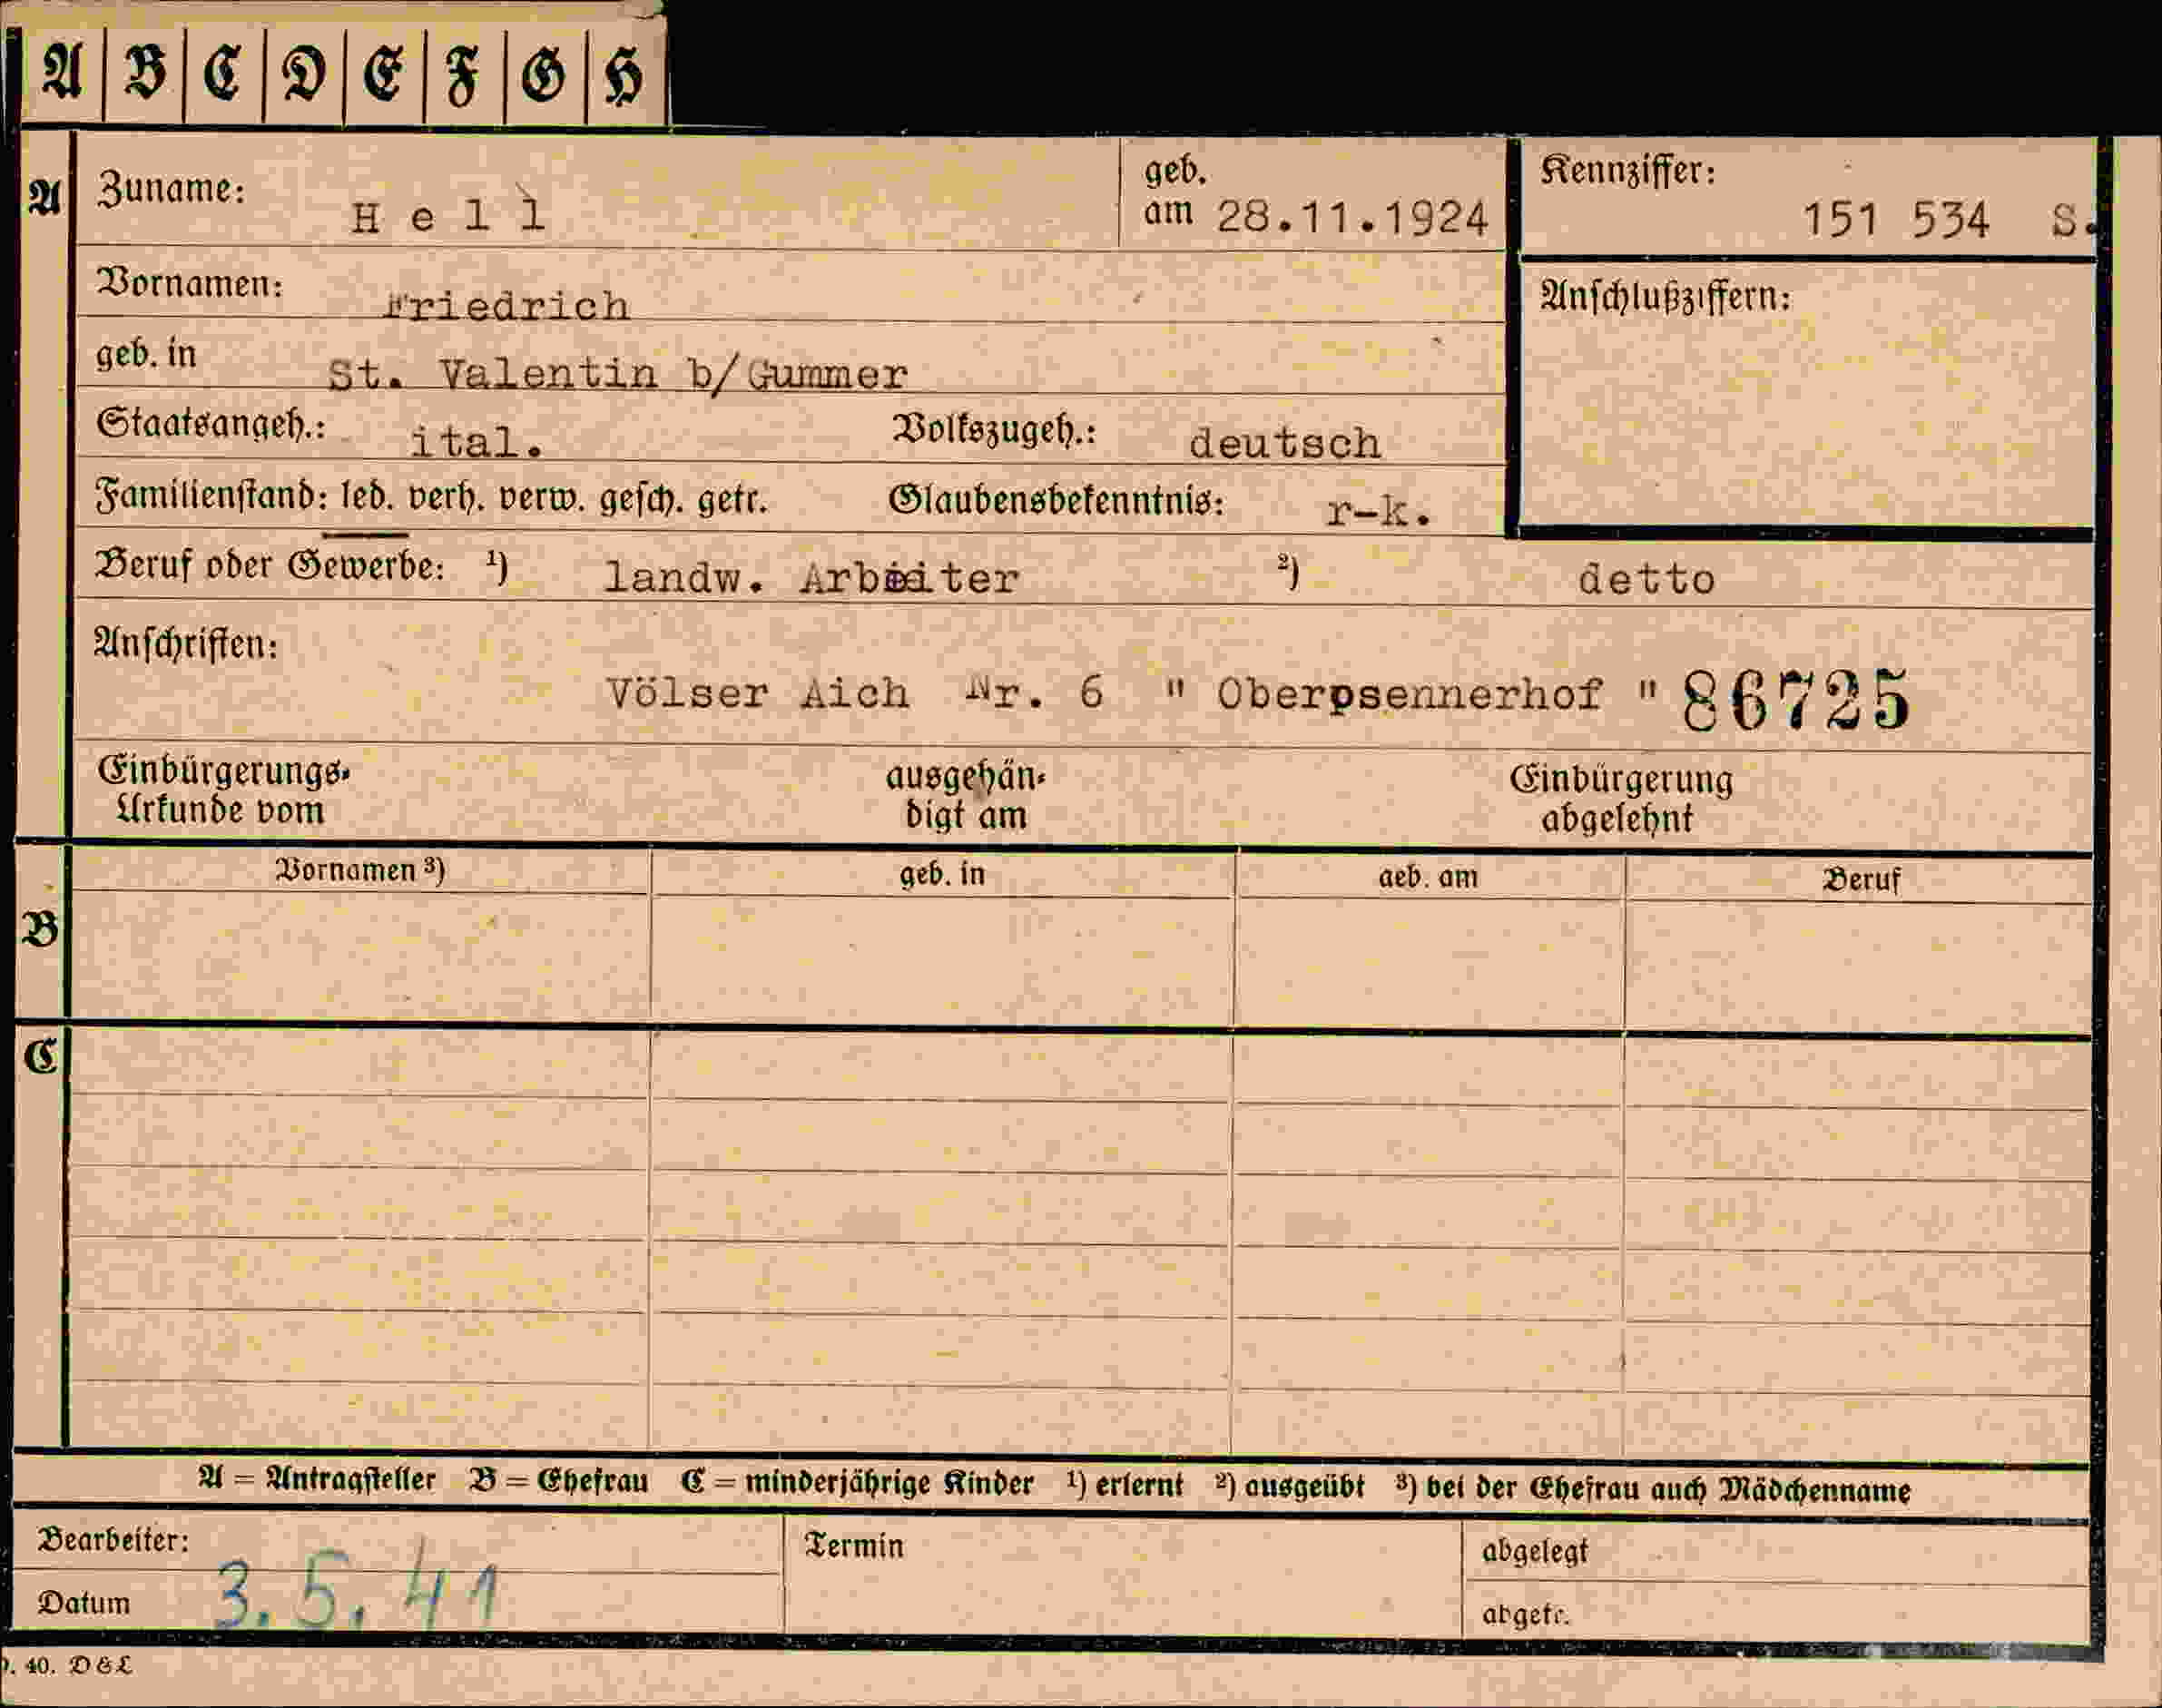 A B C D E F G H
A Zuname: Hell geb. am 28.11.1924 Kennziffer: 151 534 S.
Vornamen: Friedrich Anschlußziffern:
geb. in St. Valentin b/Gummer
Staatsangeh.: ital. Volkszugeh.: deutsch
Familienstand: led. verh. verw. gesch. getr. Glaubensbekenntnis: r-k.
Beruf oder Gewerbe: ¹) landw. Arbeiter ²) detto
Anschriften:
Völser Aich Nr. 6 " Oberpsennerhof " 86725
Einbürgerungs- Urkunde vom ausgehän- digt am Einbürgerung abgelehnt
Vornamen ³) geb. in geb. am Beruf
B
C
A = Antragsteller B = Ehefrau C = minderjährige Kinder ¹) erlernt ²) ausgeübt ³) bei der Ehefrau auch Mädchenname
Bearbeiter: Termin abgelegt
Datum 3.5.41 abgetr.
40. D & L